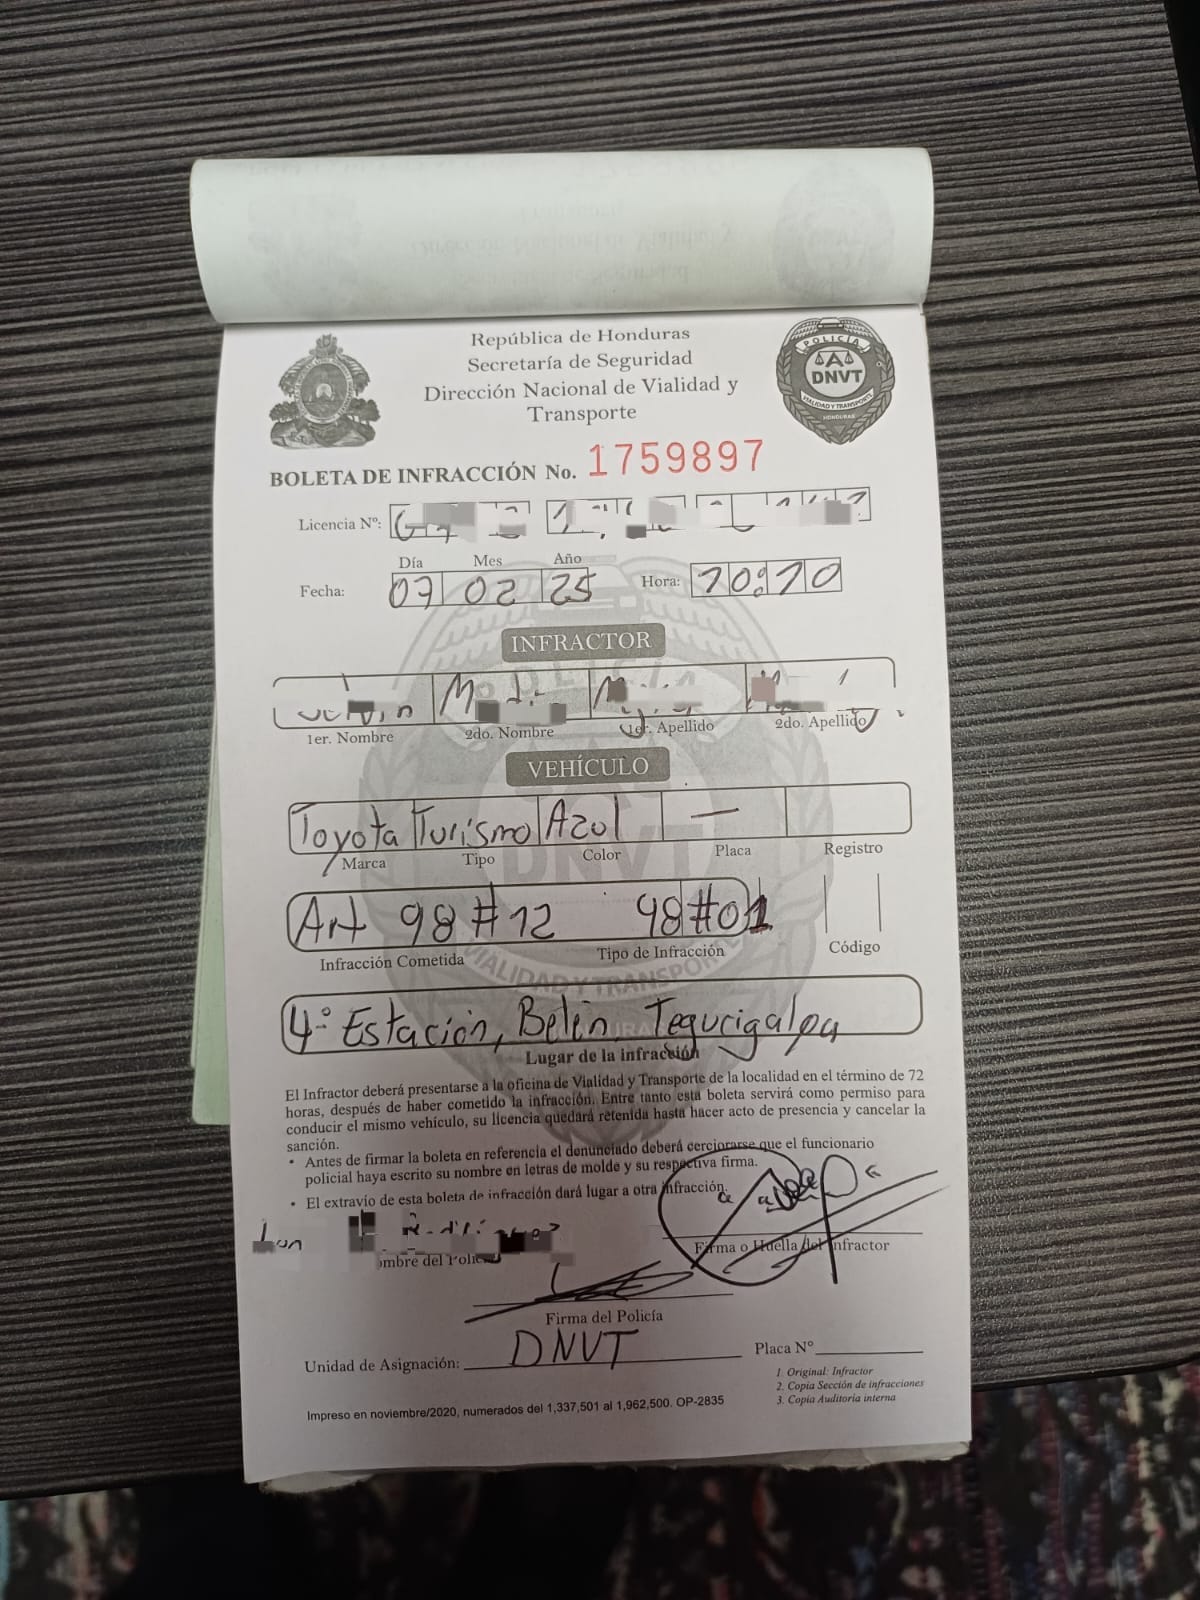 República de Honduras
Secretaría de Seguridad
Dirección Nacional de Vialidad y
Transporte
POLICIA
DNVT
VIALIDAD Y TRANSPORTE
HONDURAS
BOLETA DE INFRACCIÓN No. 1759897
Licencia Nº:
Día Mes Año
Fecha: 07 02 25 Hora: 10:10
INFRACTOR
1er. Nombre 2do. Nombre 1er. Apellido 2do. Apellido
VEHÍCULO
Toyota Turismo Azul —
Marca Tipo Color Placa Registro
Art 98 #12 98 #01
Infracción Cometida Tipo de Infracción Código
4° Estación, Belén, Tegucigalpa
Lugar de la infracción
El Infractor deberá presentarse a la oficina de Vialidad y Transporte de la localidad en el término de 72
horas, después de haber cometido la infracción. Entre tanto esta boleta servirá como permiso para
conducir el mismo vehículo, su licencia quedará retenida hasta hacer acto de presencia y cancelar la
sanción.
• Antes de firmar la boleta en referencia el denunciado deberá cerciorarse que el funcionario
policial haya escrito su nombre en letras de molde y su respectiva firma.
• El extravío de esta boleta de infracción dará lugar a otra infracción.
ombre del Policía
Firma o Huella del Infractor
Firma del Policía
Unidad de Asignación: DNVT Placa Nº
1. Original: Infractor
2. Copia Sección de infracciones
3. Copia Auditoria interna
Impreso en noviembre/2020, numerados del 1,337,501 al 1,962,500. OP-2835